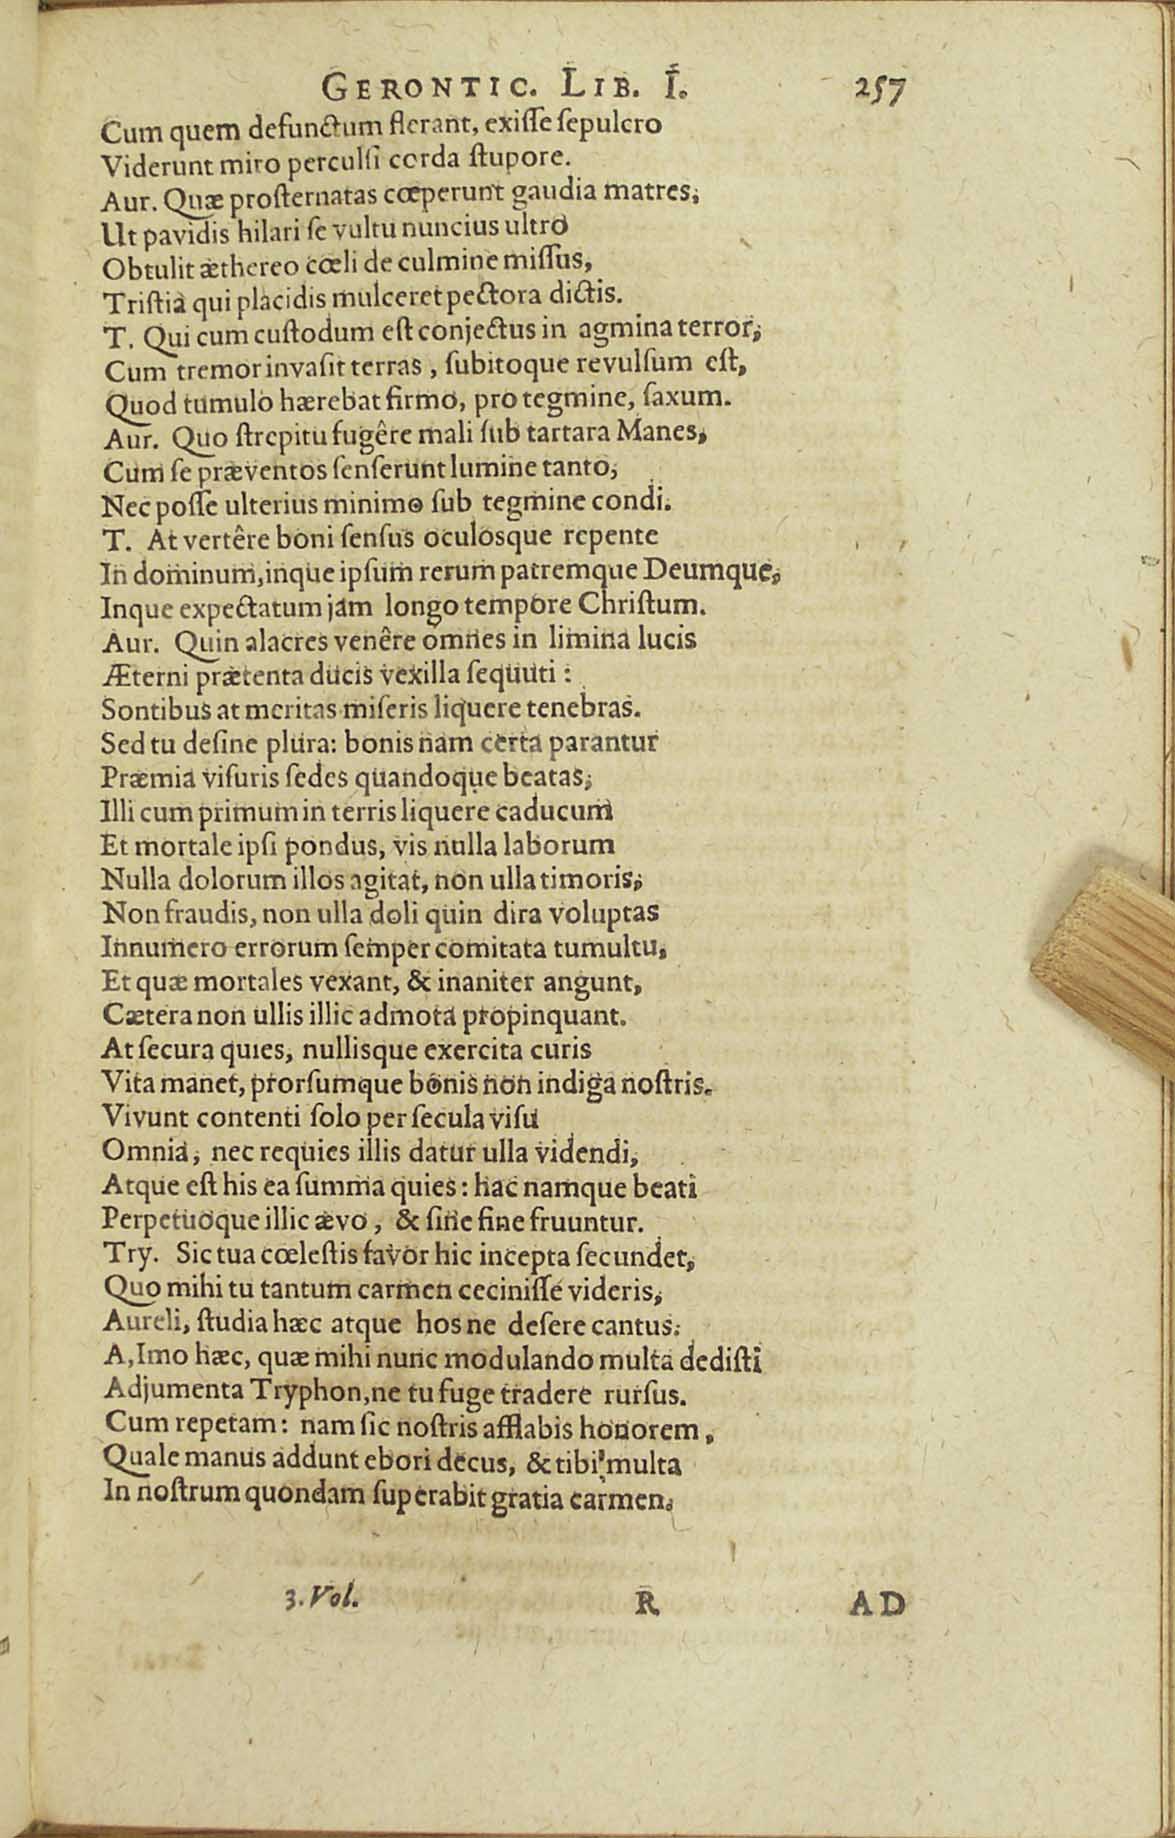 GERONTIC. LIB. I. 257
Cum quem defunctum flerant, exiſſe ſepulcro
Viderunt miro perculſi corda ſtupore.
Aur. Quæ proſternatas cœperunt gaudia matres,
Ut pavidis hilari ſe vultu nuncius ultro
Obtulit æthereo cœli de culmine miſſus,
Triſtia qui placidis mulceret pectora dictis.
T. Qui cum cuſtodum eſt conjectus in agmina terror,
Cum tremor invaſit terras, ſubitoque revulſum eſt,
Quod tumulo hærebat firmo, pro tegmine, ſaxum.
Aur. Quo ſtrepitu fugêre mali ſub tartara Manes,
Cum ſe præventos ſenſerunt lumine tanto,
Nec poſſe ulterius minimo ſub tegmine condi.
T. At vertêre boni ſenſus oculosque repente
In dominum, inque ipſum rerum patremque Deumque,
Inque expectatum jam longo tempore Chriſtum.
Aur. Quin alacres venêre omnes in limina lucis
Æterni prætenta ducis vexilla ſequuti:
Sontibus at meritas miſeris liquere tenebras.
Sed tu deſine plura: bonis nam certa parantur
Præmia viſuris ſedes quandoque beatas,
Illi cum primum in terris liquere caducum
Et mortale ipſi pondus, vis nulla laborum
Nulla dolorum illos agitat, non ulla timoris,
Non fraudis, non ulla doli quin dira voluptas
Innumero errorum ſemper comitata tumultu,
Et quæ mortales vexant, & inaniter angunt,
Cætera non ullis illic admota propinquant.
At ſecura quies, nullisque exercita curis
Vita manet, prorſumque bonis non indiga noſtris.
Vivunt contenti ſolo per ſecula viſu
Omnia, nec requies illis datur ulla videndi,
Atque eſt his ea ſumma quies: hac namque beati
Perpetuoque illic ævo, & ſine fine fruuntur.
Try. Sic tua cœleſtis favor hic incepta ſecundet,
Quo mihi tu tantum carmen ceciniſſe videris,
Aureli, ſtudia hæc atque hos ne deſere cantus.
A, Imo hæc, quæ mihi nunc modulando multa dediſti
Adjumenta Tryphon, ne tu fuge tradere rurſus.
Cum repetam: nam ſic noſtris afflabis honorem,
Quale manus addunt ebori decus, & tibi multa
In noſtrum quondam ſuperabit gratia carmen.
3. Vol. R AD